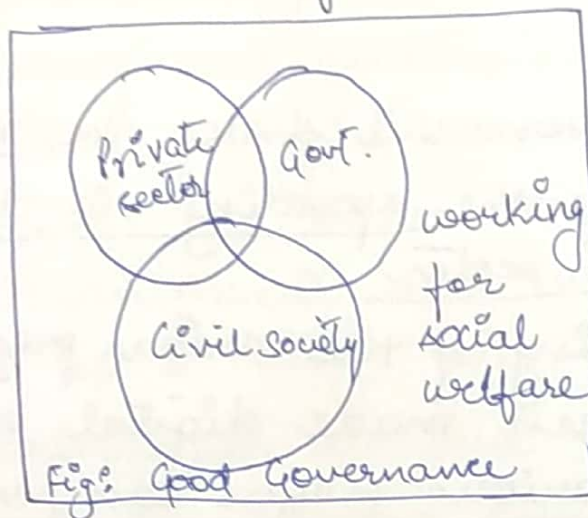 Private
sector
Govt.
Civil society
working
for
social
welfare
Fig: Good Governance